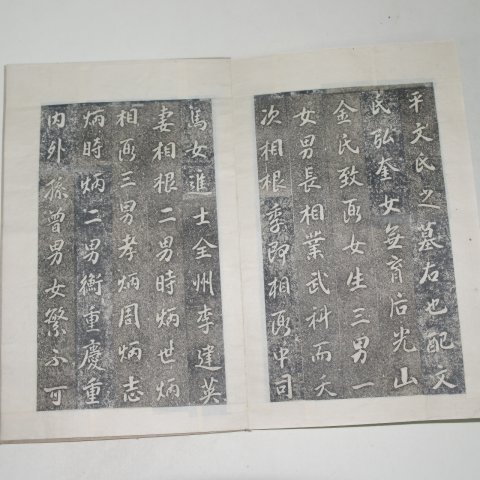 平文氏之墓右也配文
氏弘奎女無育后光山
金氏致女生三男一
女男長相業武科而夭
次相根季即相中司
馬女進士全州李建英
妻相根二男時炳世炳
相三男孝炳周炳志
炳時炳二男衡重慶重
内外孫曾男女繁不可